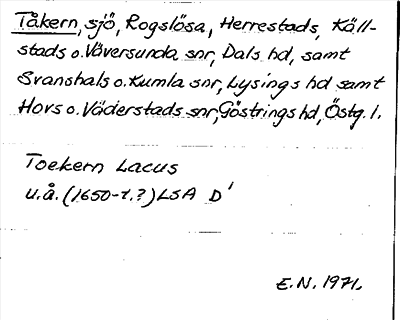 Tåkern, sjö, Rogslösa, Herrestads, Käll-
stads o. Väversunda snr, Dals hd, samt
Svanshals o. Kumla snr, Lysings hd samt
Hovs o. Väderstads snr, Göstrings hd, Östg. l.
Toekern Lacus
u.å. (1650-t.?) LSA D'
E.N. 1971.